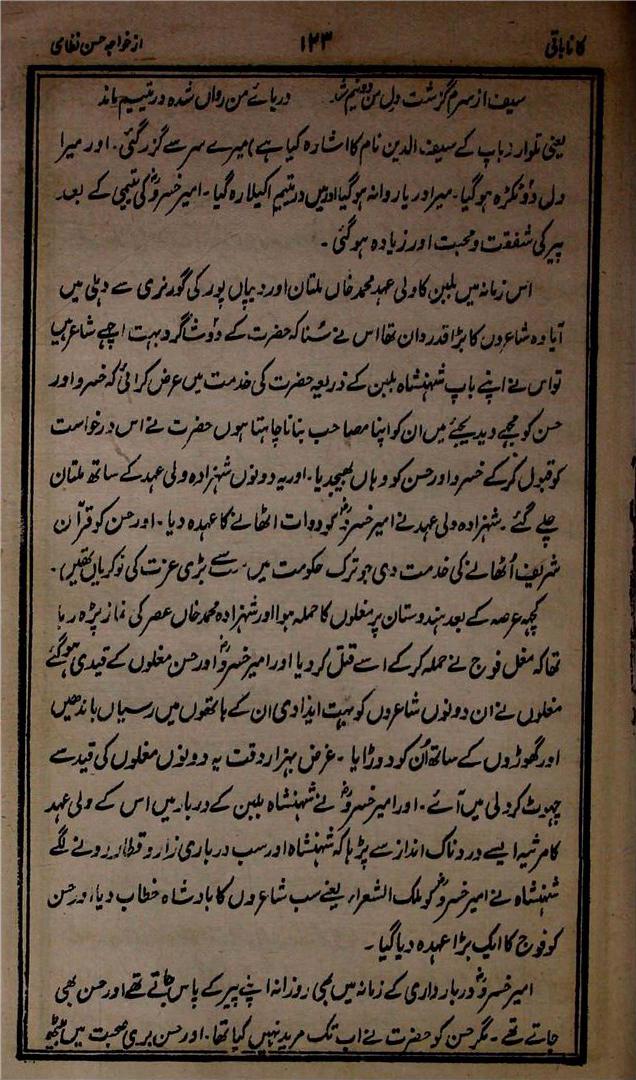 کانا باقی ۱۲۳ از خواجہ حسن نظامی
سیف از سرم گزشت دل من دو نیم شد دریائے من رواں شدہ در یتیم ماند
یعنی تلوار (باپ کے سیف الدین نام کا اشارہ کیا ہے) میرے سر سے گزر گئی۔ اور میرا
دل دو ٹکڑہ ہو گیا۔ میرا دریا روانہ ہو گیا اور میں در یتیم اکیلا رہ گیا۔ امیر خسروؒ کی یتیمی کے بعد
پیر کی شفقت و محبت اور زیادہ ہو گئی۔
اس زمانہ میں بلبن کا ولی عہد محمد خاں ملتان اور دیپال پور کی گورنری سے دہلی میں
آیا وہ شاعروں کا بڑا قدردان تھا اس نے سُنا کہ حضرت کے دو شاگرد بہت اچھے شاعر ہیں
تو اس نے اپنے باپ شہنشاہ بلبن کے ذریعہ حضرت کی خدمت میں عرض کرائی کہ خسرو اور
حسن کو مجھے دیدیجئے میں ان کو اپنا مصاحب بنانا چاہتا ہوں حضرت نے اس درخواست
کو قبول کر کے خسرو اور حسن کو وہاں بھیجدیا۔ اور یہ دونوں شہزادہ ولی عہد کے ساتھ ملتان
چلے گئے۔ شہزادہ ولی عہد نے امیر خسروؒ کو دوات اٹھانے کا عہدہ دیا۔ اور حسن کو قرآن
شریف اُٹھانے کی خدمت دی جو ترک حکومت میں سب سے بڑی عزت کی نوکریاں تھیں۔
کچھ عرصہ کے بعد ہندوستان پر مغلوں کا حملہ ہوا اور شہزادہ محمد خاں عصر کی نماز پڑھ رہا
تھا کہ مغل فوج نے حملہ کر کے اسے قتل کر دیا اور امیر خسروؒ اور حسن مغلوں کے قیدی ہو گئے
مغلوں نے ان دونوں شاعروں کو بہت ایذا دی ان کے ہاتھوں میں رسیاں باندھیں
اور گھوڑوں کے ساتھ اُن کو دوڑایا۔ غرض بہزار دقت یہ دونوں مغلوں کی قید سے
چھوٹ کر دلی میں آئے۔ اور امیر خسروؒ نے شہنشاہ بلبن کے دربار میں اس کے ولی عہد
کا مرثیہ ایسے دردناک انداز سے پڑہا کہ شہنشاہ اور سب درباری زار و قطار رونے لگے
شہنشاہ نے امیر خسروؒ کو ملک الشعراء یعنے سب شاعروں کا بادشاہ خطاب دیا، اور حسن
کو فوج کا ایک بڑا عہدہ دیا گیا۔
امیر خسروؒ دربارداری کے زمانہ میں بھی روزانہ اپنے پیر کے پاس جاتے تھے اور حسن بھی
جاتے تھے۔ مگر حسن کو حضرت نے اب تک مرید نہیں کیا تھا۔ اور حسن بری صحبت میں بیٹھ